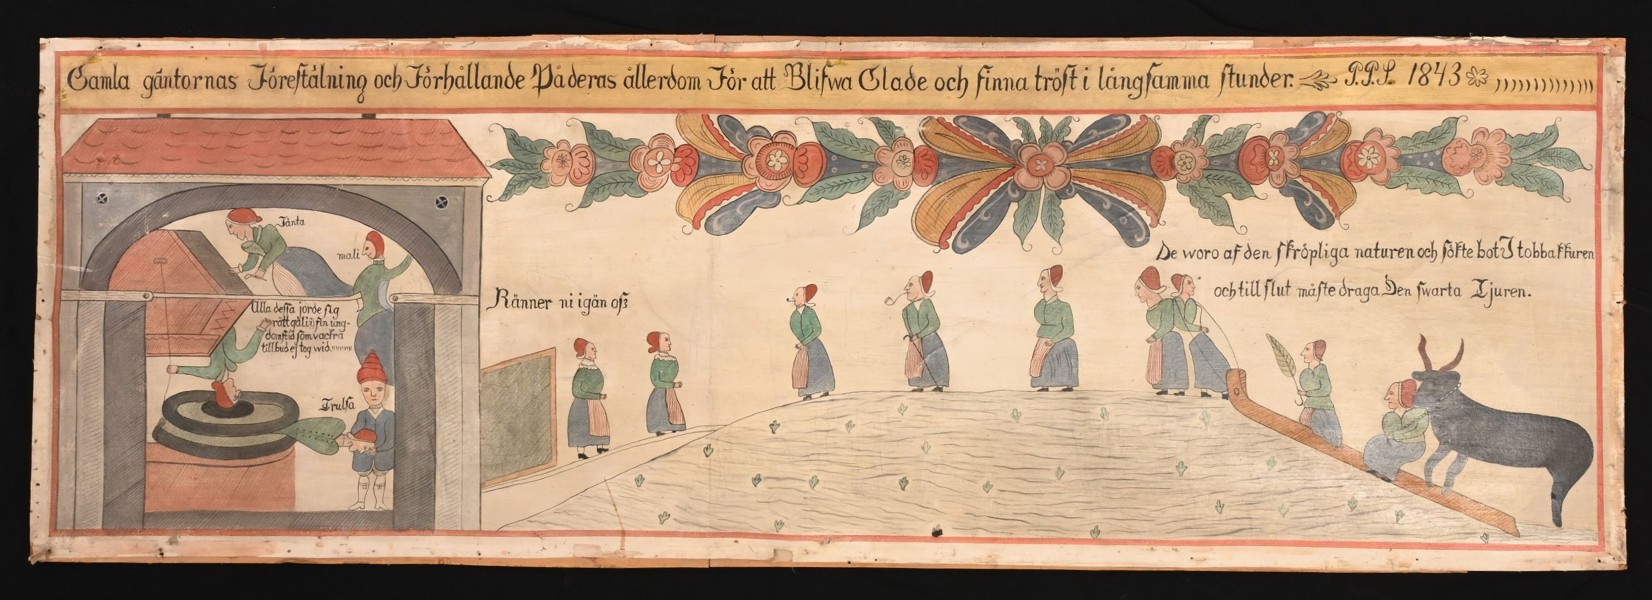 Gamla gäntornas Föreställning och Förhållande På deras ållerdom För att Blifwa Glade och finna tröst i långsamma stunder. P.P.S. 1843
Jänta
mali
Alla dessa jorde sig
rätt gäli fin ung-
domstid som vackra
tillbud ej tog wid
Trulsa
Känner ni igän oss
De woro af den skröpliga naturen och sökte bot I tobbakkuren
och till slut måste draga Den swarta Tjuren.